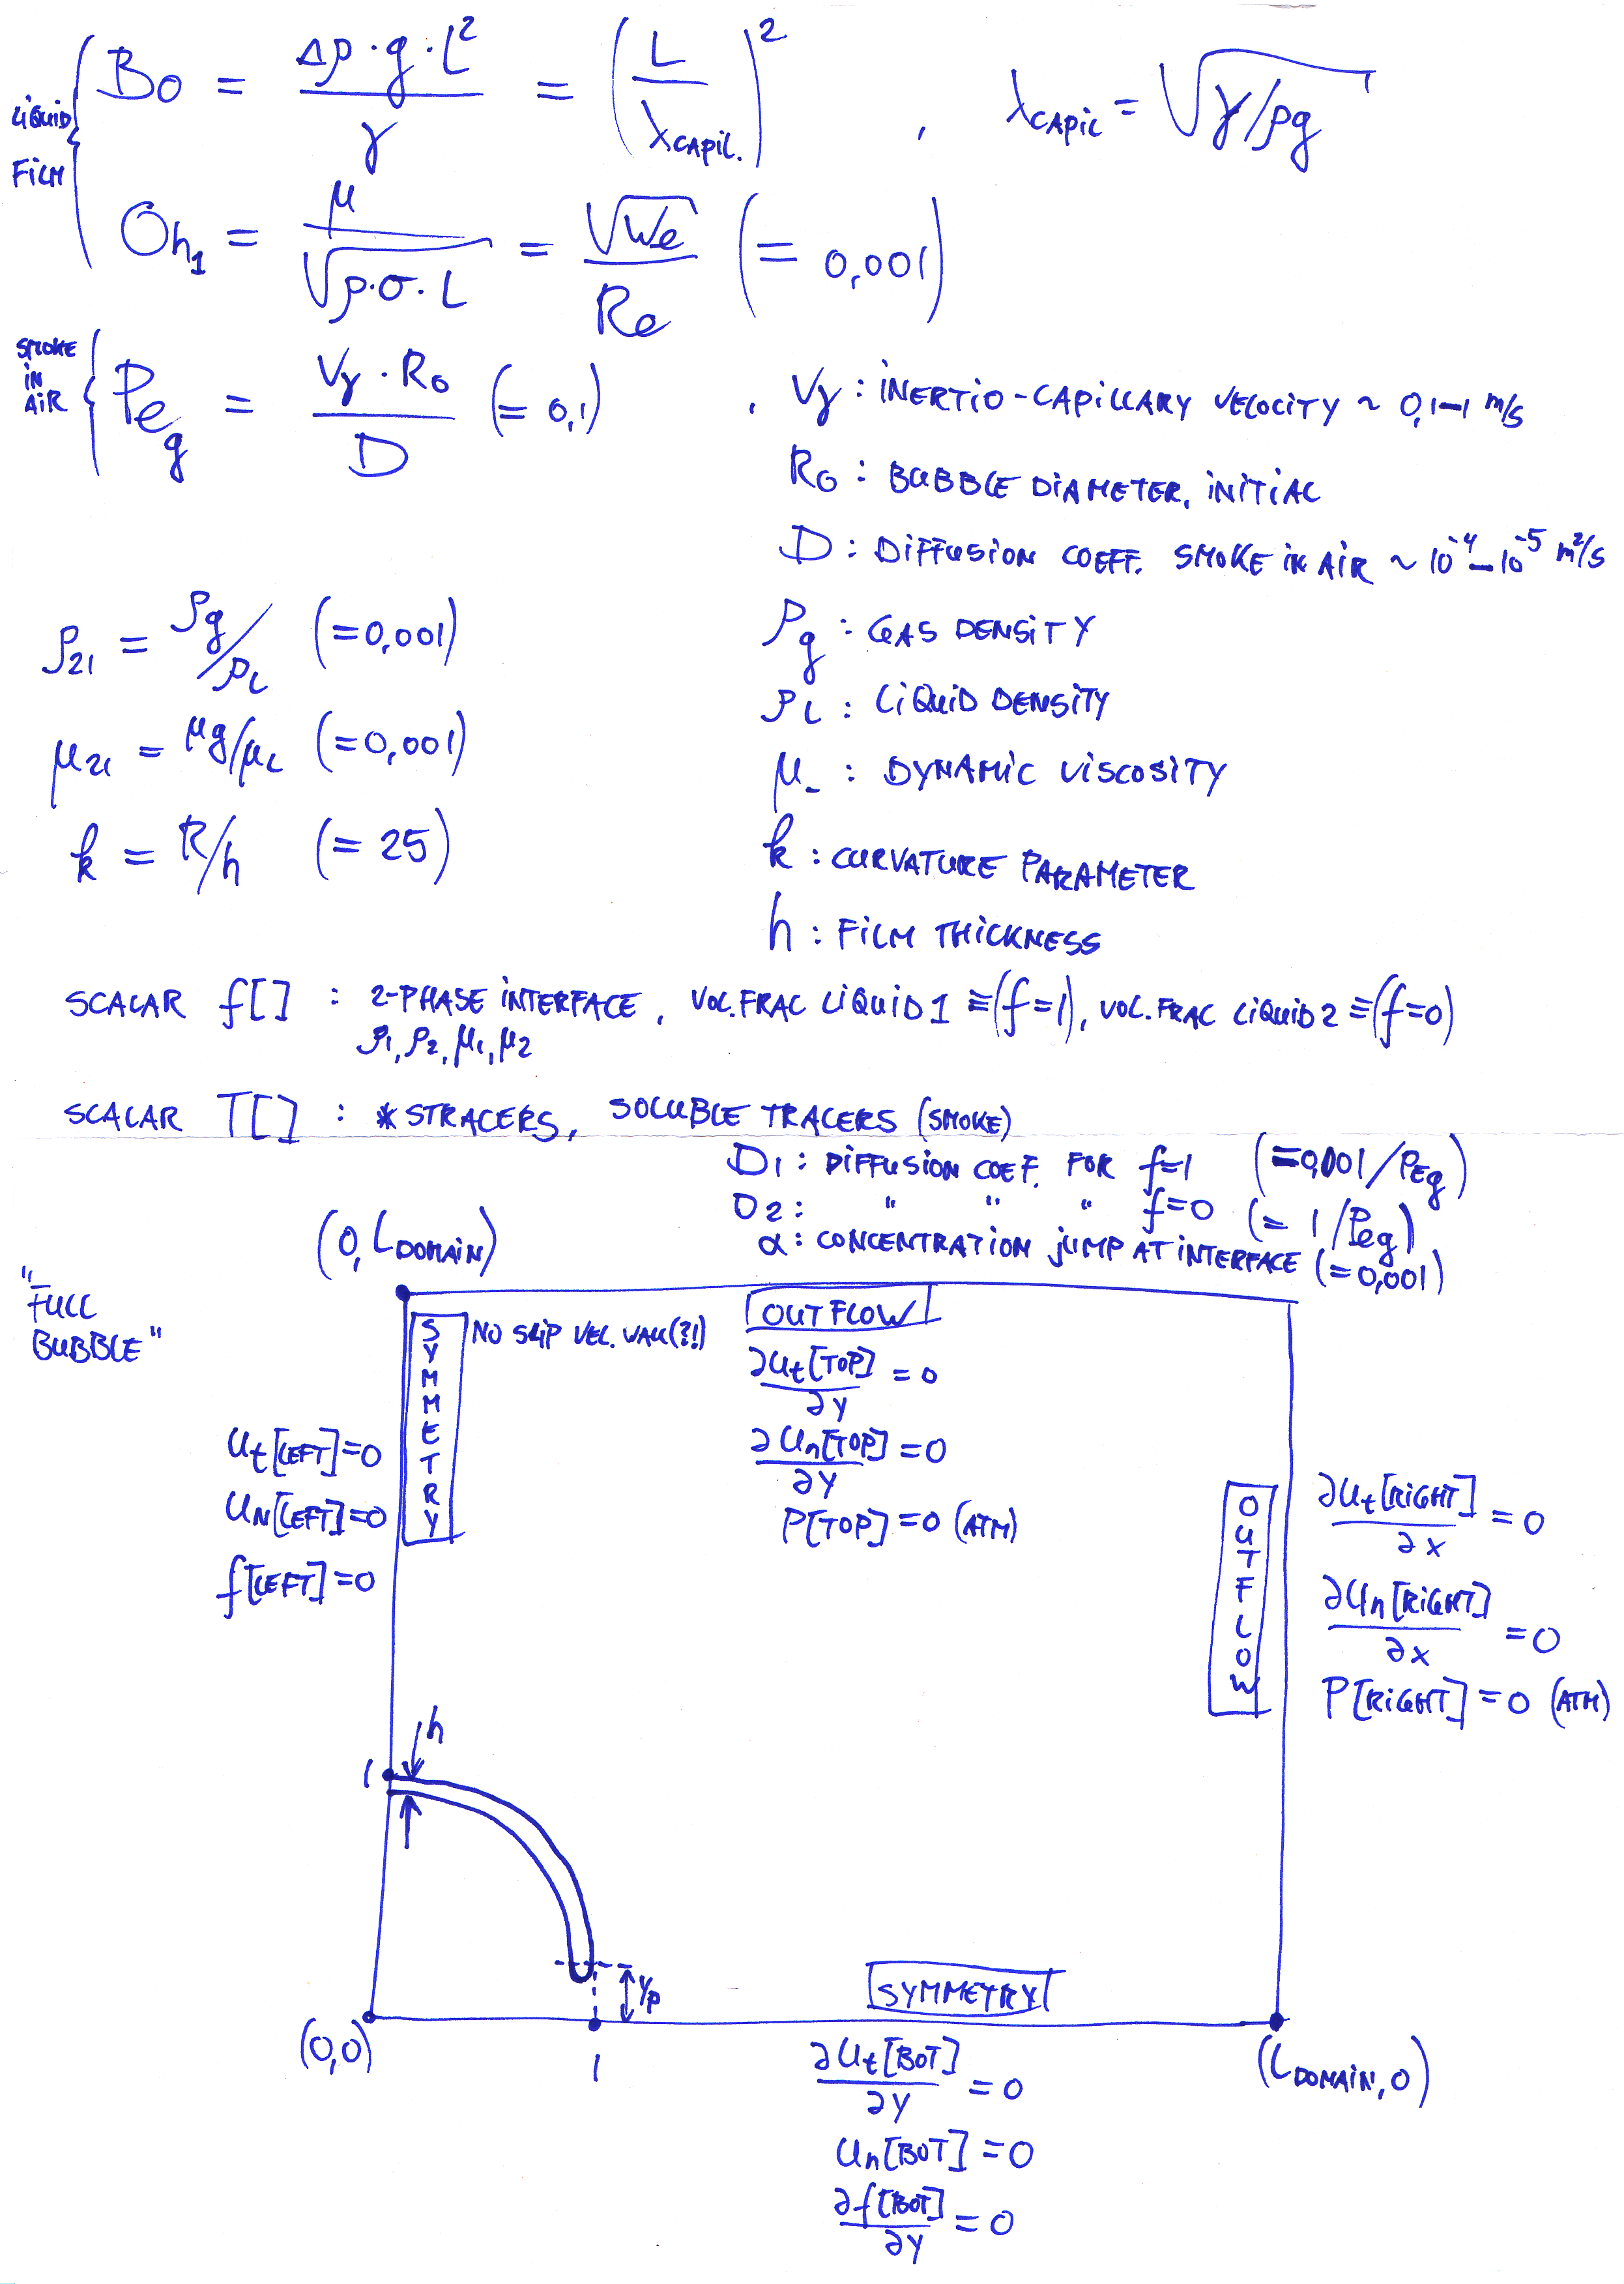 LIQUID FILM { Bo = Δρ·g·L² / γ = (L / λCAPIL.)² , λCAPIL = √γ/ρg
Oh₁ = μ / √ρ·σ·L = √We / Re (= 0,001)
SMOKE IN AIR { Peg = Vγ·R₀ / D (= 0,1) , Vγ : INERTIO-CAPILLARY VELOCITY ~ 0,1–1 m/s
R₀ : BUBBLE DIAMETER, INITIAL
D : DIFFUSION COEFF. SMOKE IN AIR ~ 10⁻⁴–10⁻⁵ m²/s
ρ₂₁ = ρg/ρL (=0,001) ρg : GAS DENSITY
ρL : LIQUID DENSITY
μ₂₁ = μg/μL (=0,001) μ- : DYNAMIC VISCOSITY
k = R/h (= 25) k : CURVATURE PARAMETER
h : FILM THICKNESS
SCALAR f[] : 2-PHASE INTERFACE, VOL.FRAC LIQUID 1 ≡(f=1), VOL.FRAC LIQUID 2 ≡(f=0)
ρ₁, ρ₂, μ₁, μ₂
SCALAR T[] : * STRACERS, SOLUBLE TRACERS (SMOKE)
D₁ : DIFFUSION COEF. FOR f=1 (=0,001/Peg)
D₂ : " " " f=0 (= 1/Peg)
α : CONCENTRATION JUMP AT INTERFACE (=0,001)
(0, LDOMAIN)
"FULL
BUBBLE"
SYMMETRY
NO SLIP VEL. WALL(?!)
OUTFLOW
∂ut[TOP]/∂y = 0
∂un[TOP]/∂y = 0
P[TOP] = 0 (ATM)
ut[LEFT]=0
uN[LEFT]=0
f[LEFT]=0
OUTFLOW
∂ut[RIGHT]/∂x = 0
∂un[RIGHT]/∂x = 0
P[RIGHT] = 0 (ATM)
h
1
yp
SYMMETRY
(0,0)
1
(LDOMAIN, 0)
∂ut[BOT]/∂y = 0
un[BOT] = 0
∂f[BOT]/∂y = 0